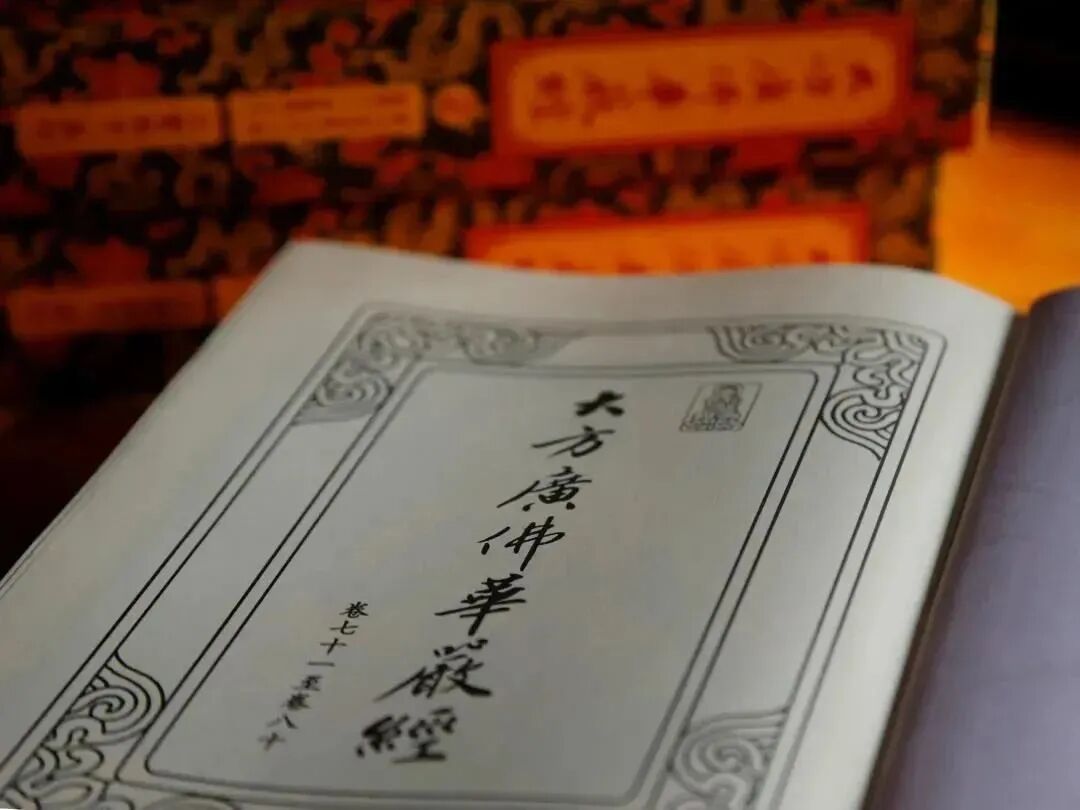 大方廣佛華嚴經
卷七十一至卷八十